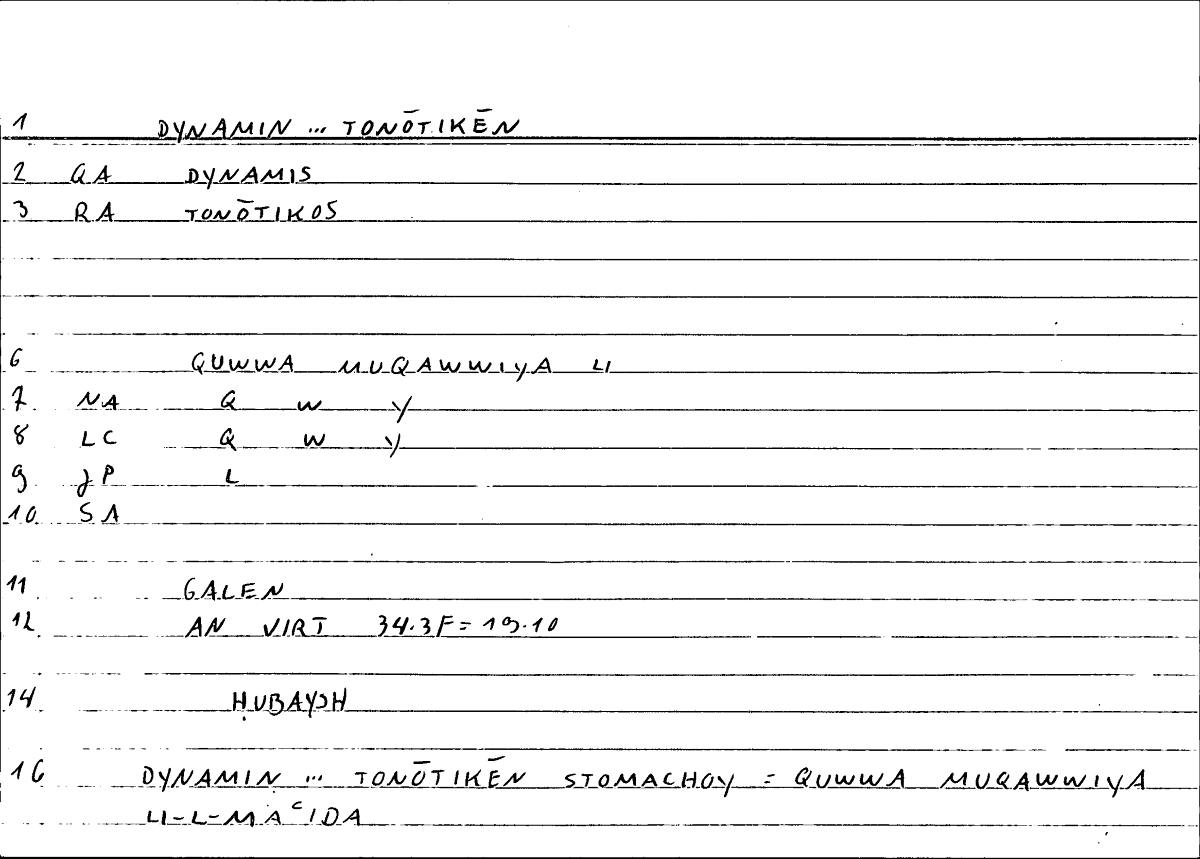 1 DYNAMIN ... TONŌTIKĒN
2 QA DYNAMIS
3 RA TONŌTIKOS
6 QUWWA MUQAWWIYA LI
7 NA Q W Y
8 LC Q W Y
9 JP L
10 SA
11 GALEN
12 AN VIRT 34.3F = 19.10
14 ḤUBAYSH
16 DYNAMIN ... TONŌTIKĒN STOMACHOY = QUWWA MUQAWWIYA
LI-L-MAᶜIDA